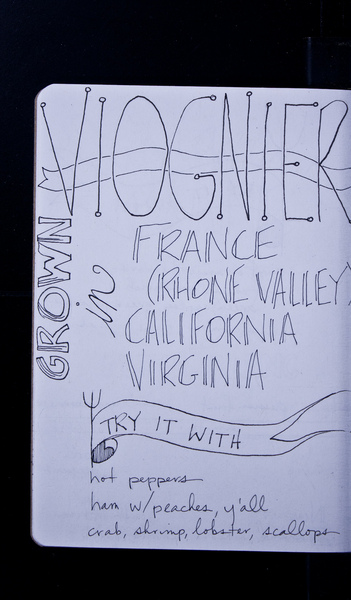 VIOGNIER
GROWN in
FRANCE
(RHONE VALLEY)
CALIFORNIA
VIRGINIA
TRY IT WITH
hot peppers
ham w/peaches, y'all
crab, shrimp, lobster, scallops